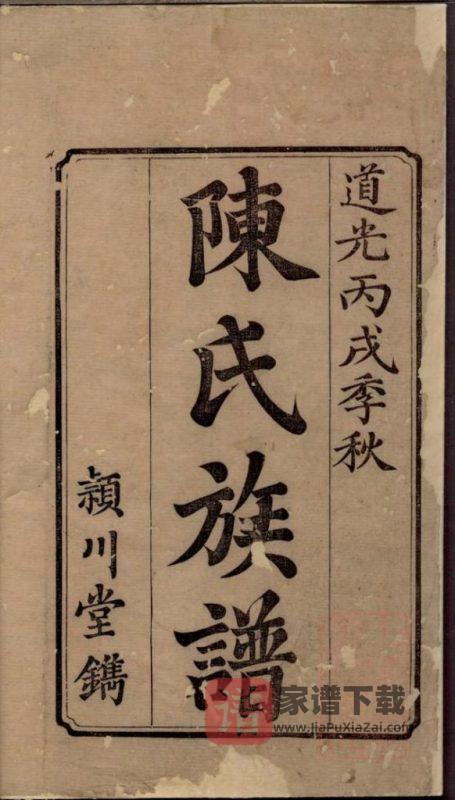 道光丙戌季秋
陳氏族譜
潁川堂鐫
家谱下载
www.JiaPuXiaZai.com